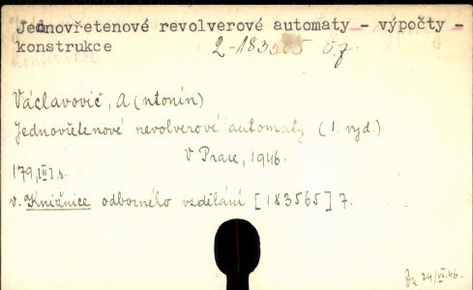 Jednovřetenové revolverové automaty - výpočty -
konstrukce
2-183565 Ú.f.
Václavovič, A(ntonín)
Jednovřetenové revolverové automaty (1. vyd.)
V Praze, 1946.
179, [III] s.
v. Knižnice odborného vzdělání [183565] 7.
24/VI.46.